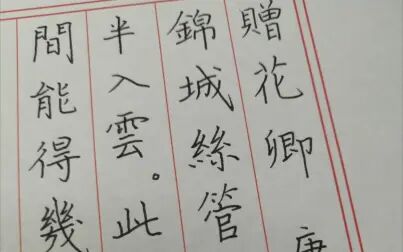 贈花卿 唐
錦城絲管
半入雲。此
間能得幾